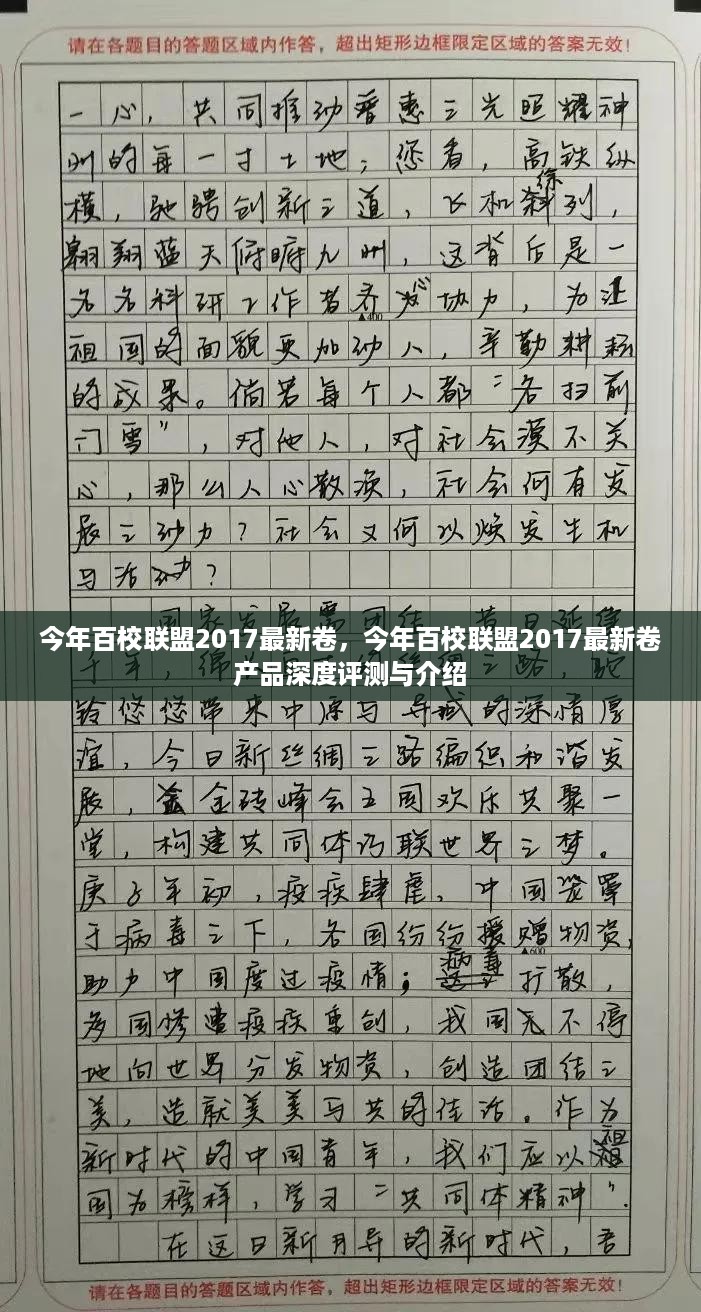 请在各题目的答题区域内作答，超出矩形边框限定区域的答案无效！
一心，共同推动普惠之光照耀神
州的每一寸土地；您看，高铁纵
横，驰骋创新之道，飞机编列，
翱翔蓝天俯瞰九州，这背后是一
名名科研工作者齐心协力，为让
▲400
祖国的面貌更加动人，辛勤耕耘
的成果。倘若每个人都“各扫前
门雪”，对他人，对社会漠不关
心，那么人心散涣，社会何有发
展之动力？社会又何以焕发生机
与活力？
国家发展需团结，昔日延续
今年百校联盟2017最新卷，今年百校联盟2017最新卷
产品深度评测与介绍
千年，绵 之路，驼
铃悠悠带来中原与异域的深情厚
谊，今日新丝绸之路编织和谐发
展，金砖峰会五国欢乐共聚一
堂，构建共同体巧联世界之梦。
庚子年初，疫疾肆虐，中国笼罩
于病毒之下，各国纷纷援赠物资，
▲600
助力中国度过疫情；病毒扩散，
多国惨遭疫疾重创，我国无不停
地向世界分发物资，创造团结之
美，造就美美与共的佳话。作为
新时代的中国青年，我们应以祖
国为榜样，学习“共同体精神”．
在这日新月异的新时代，吾
请在各题目的答题区域内作答，超出矩形边框限定区域的答案无效！